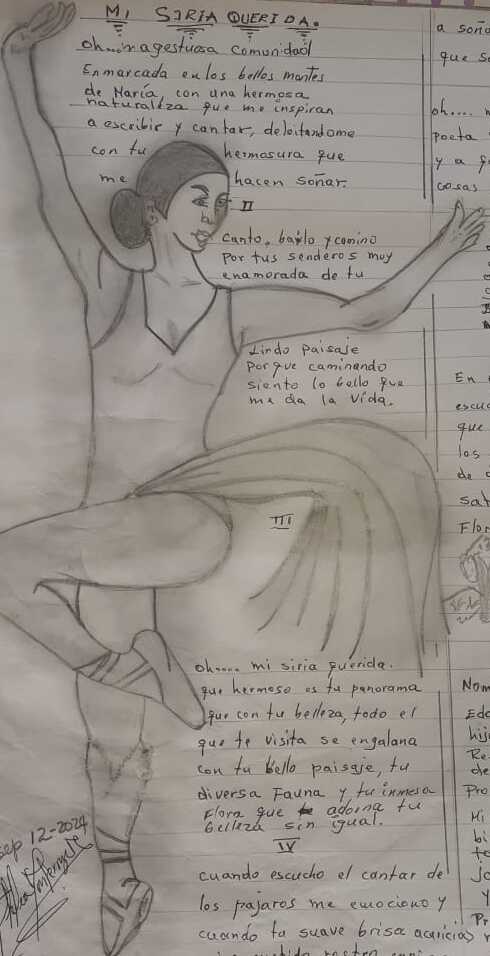 MI SIRIA QUERIDA.
oh.... magestuosa comunidad
Enmarcada en los bellos montes
de María, con una hermosa
naturaleza que me inspiran
a escribir y cantar, deleitandome
con tu hermosura que
me hacen soñar.
II
Canto, bailo y camino
Por tus senderos muy
enamorada de tu
Lindo paisaje
Porque caminando
siento lo bello que
me da la vida.
III
oh.... mi siria querida.
que hermoso es tu panorama
que con tu belleza, todo el
que te visita se engalana
con tu bello paisaje, tu
diversa Fauna y tu inmesa
Flora que adorna tu
belleza sin igual.
IV
cuando escucho el cantar de
los pajaros me emociono y
cuando tu suave brisa acaricias
sep 12-2024
a soña
que s
oh.... 
poeta
y a
cosas
En
escuc
que
los
de
sat
Flor
Nom
Eda
hij
Re
de
Pro
Mi
bi
te
Jo
y
Pr